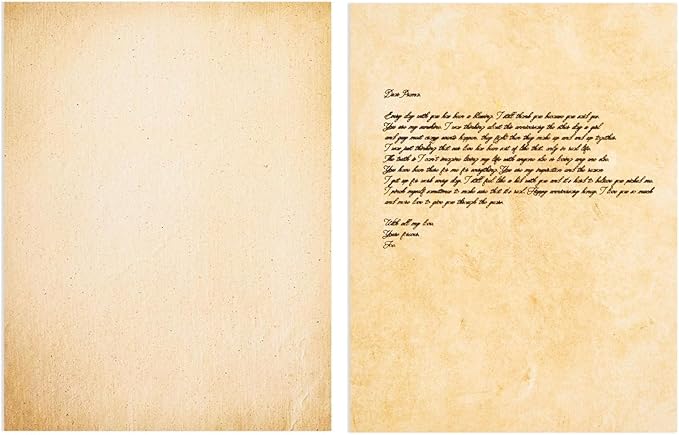 Dear
Every day with you has been a blessing. I still thank you because you exist you.
You are my sunshine. I was thinking about this anniversary the other day a girl
and guy meet as my words happen. they fight then they make up and end up together.
I was just thinking that our love has been sort of like that. only in real life.
The truth is I can't imagine living my life with anyone else or loving any one else.
You have been there for me for everything. You are my inspiration and the reason
I get up for work every day. I still feel like a kid with you and it's hard to believe you picked me.
I pinch myself sometimes to make sure that it's real. Happy anniversary honey. I love you so much
and more love to give you through the years.
With all my love.
Yours forever.